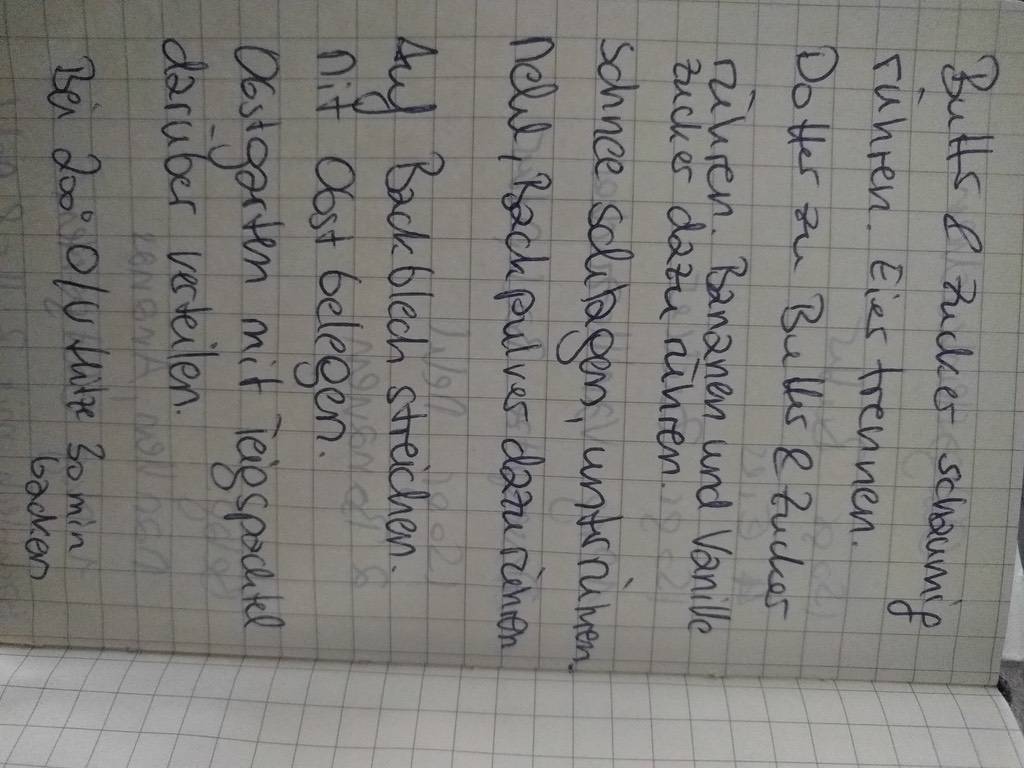 Butter & Zucker schaumig
rühren. Eier trennen.
Dotter zu Butter & Zucker
rühren. Bananen und Vanille
zucker dazu rühren.
Schnee schlagen, unterrühren.
Mehl, Backpulver dazurühren
Auf Backblech streichen.
Mit Obst belegen.
Obstgarten mit Teigspachtel
darüber verteilen.
Bei 200° O/U Hitze 30 min
backen